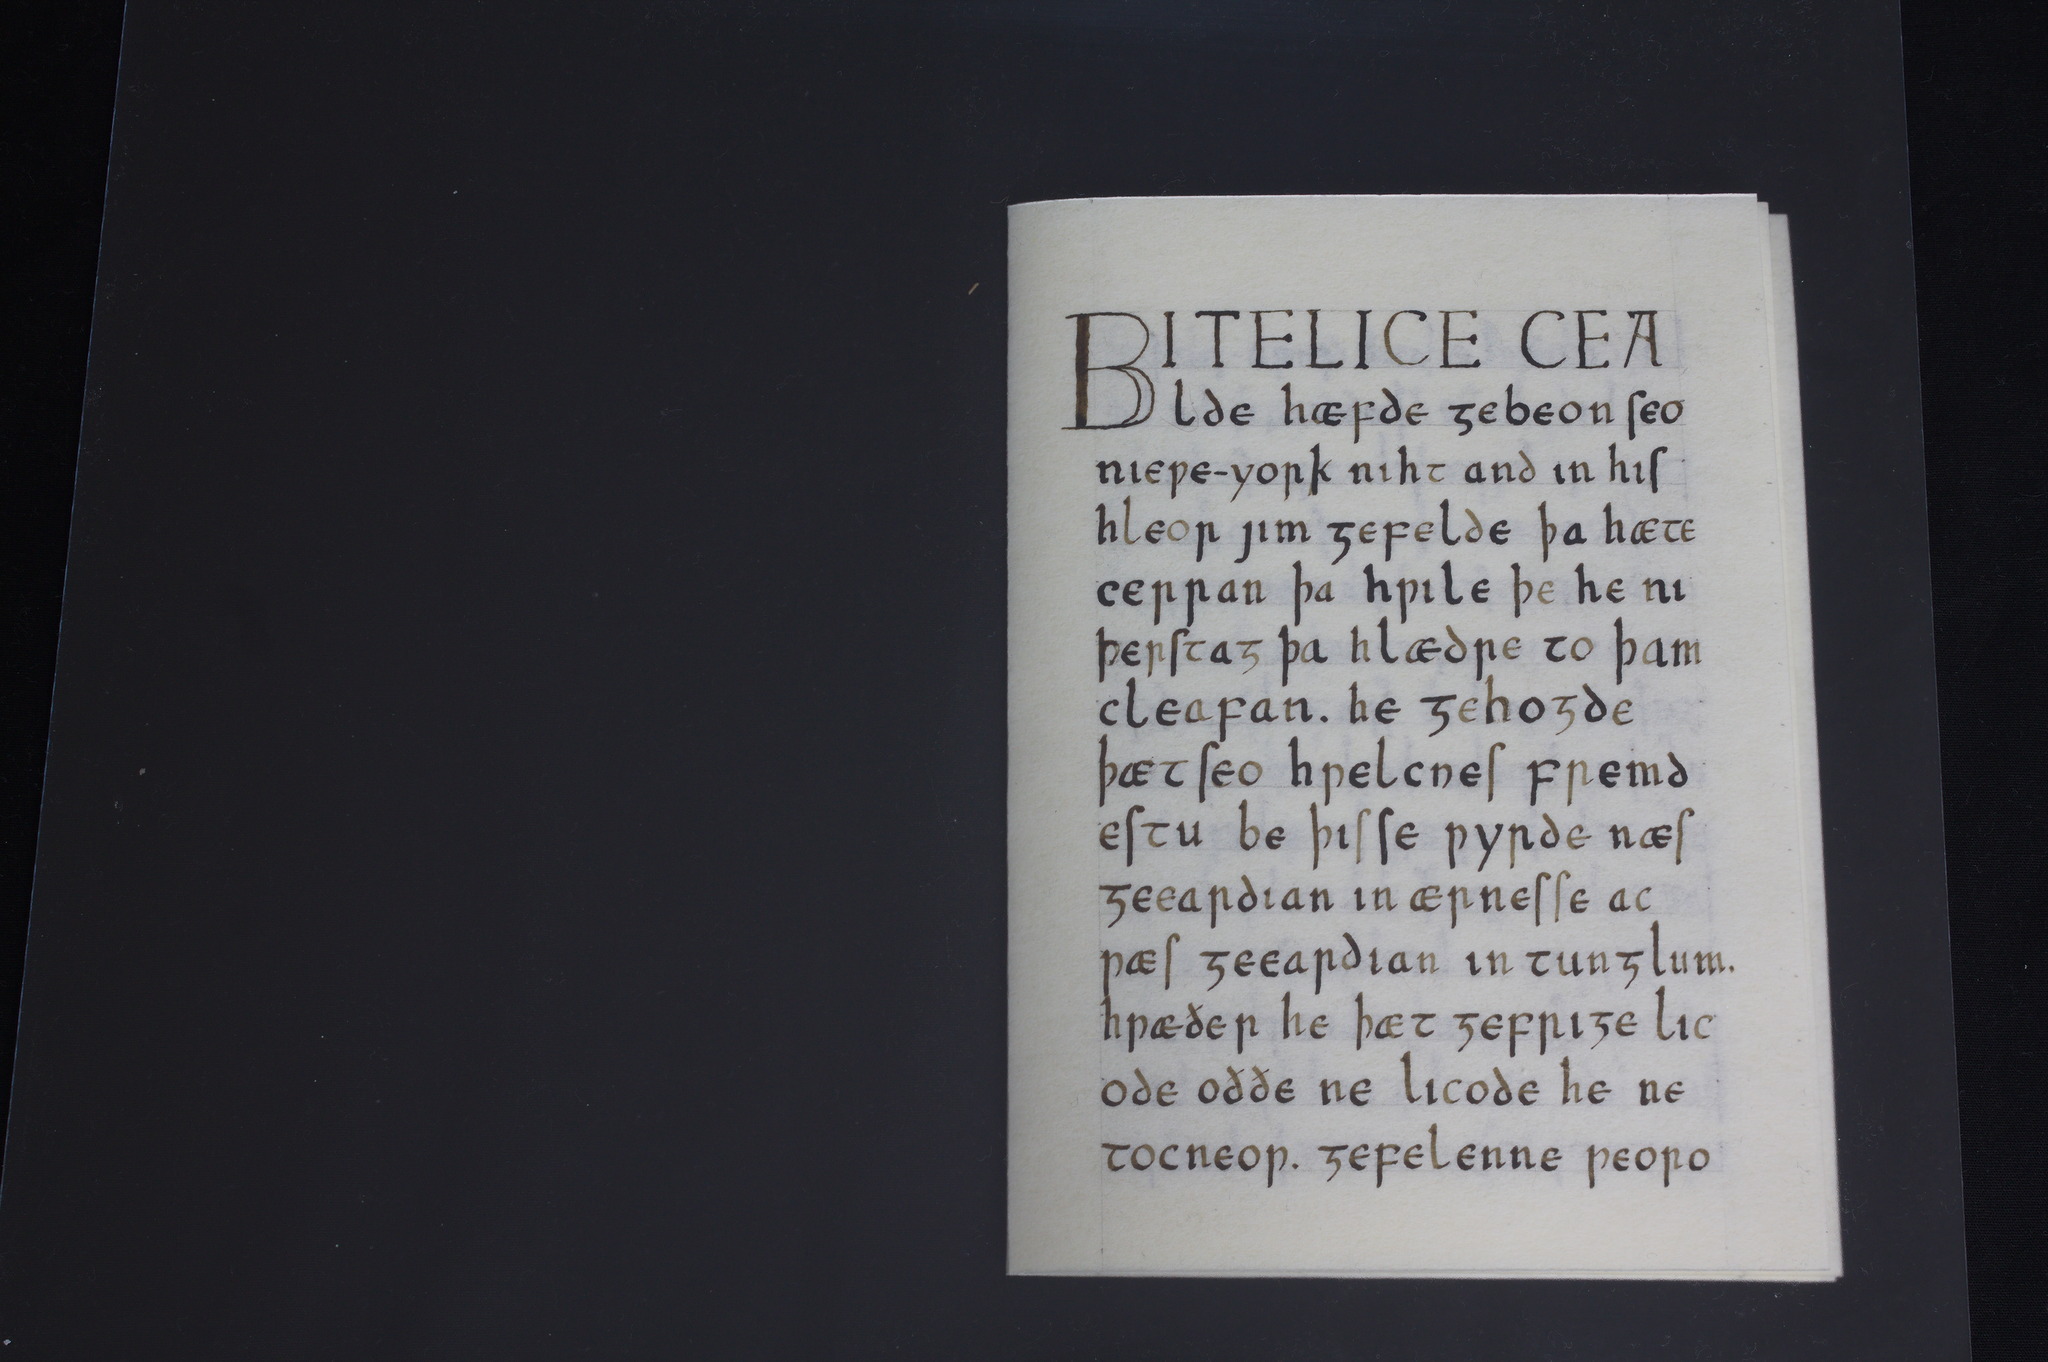 BITELICE CEA
lde hæfde gebeon seo
nieƿe-york niht and in his
hleor jim gefelde þa hæte
cerran þa hƿile þe he ni
þerstag þa hlædre to þam
cleafan. he gehogde
þæt seo hƿelcnes fremd
estu be þisse ƿyrde næs
geeardian in ærnesse ac
ƿæs geeardian in tunglum.
hƿæðer he þæt gefrige lic
ode oððe ne licode he ne
tocneoƿ. gefelenne ƿeoro